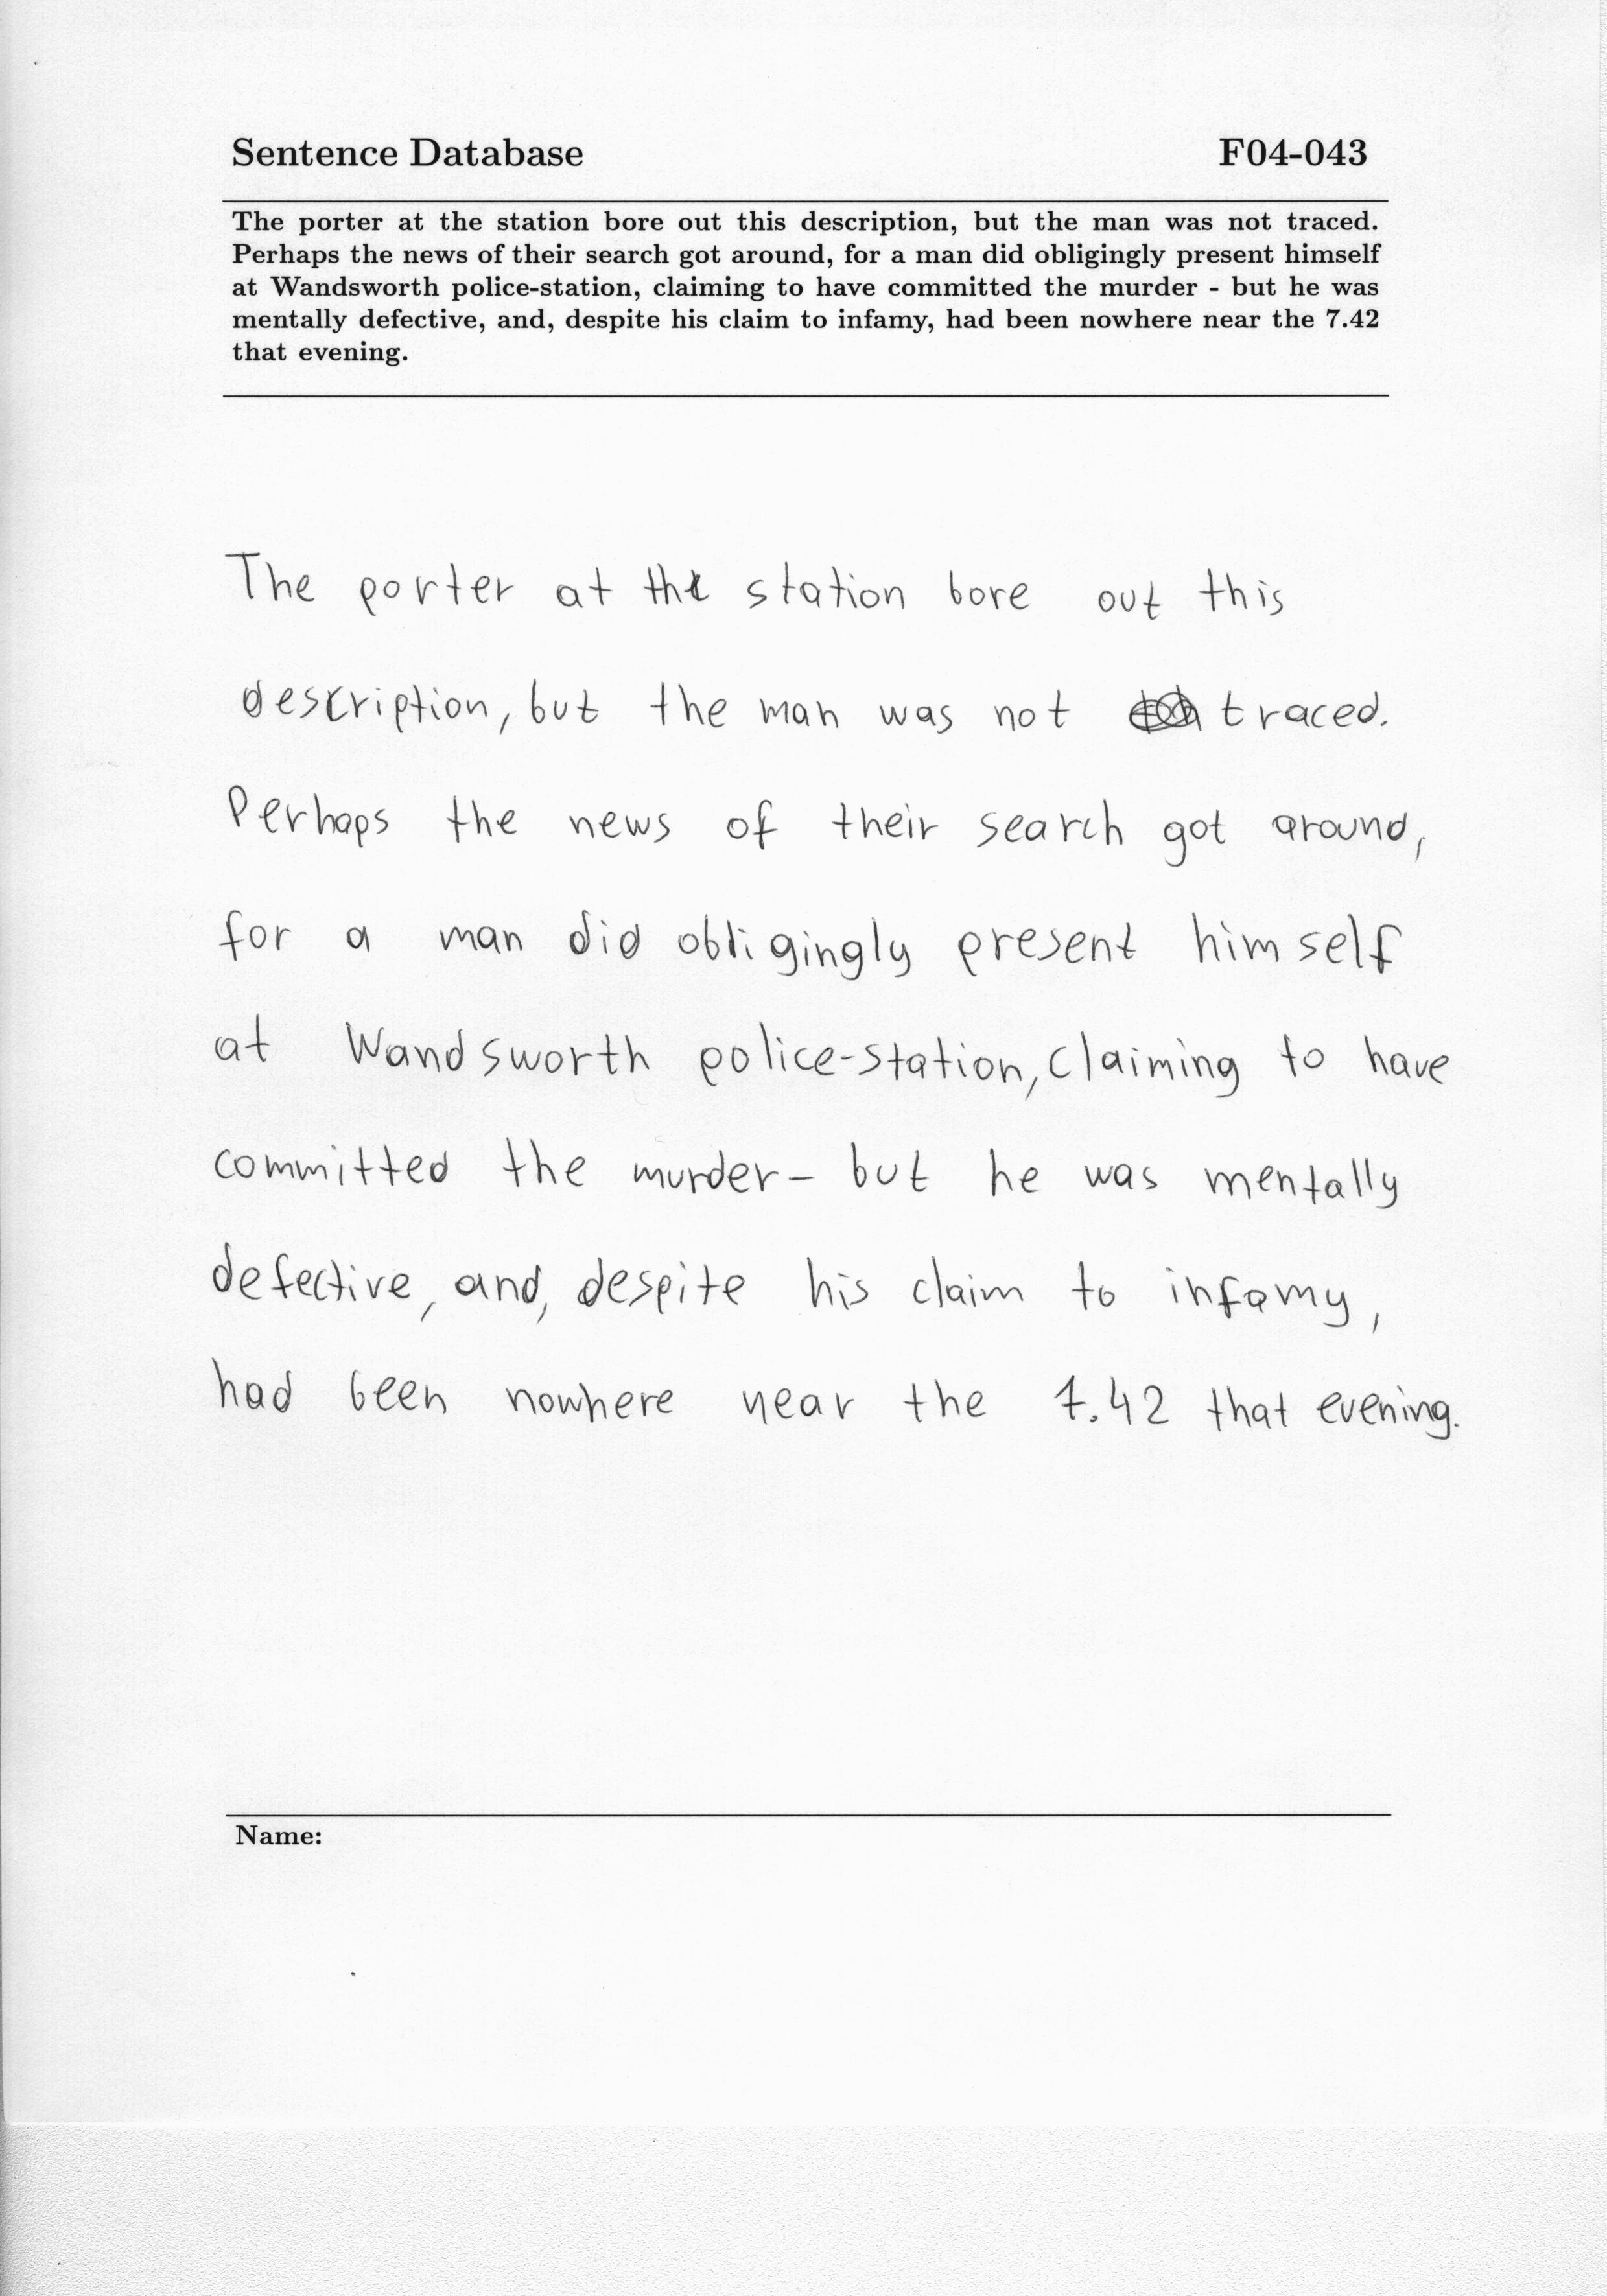 Sentence Database F04-043
The porter at the station bore out this description, but the man was not traced.
Perhaps the news of their search got around, for a man did obligingly present himself
at Wandsworth police-station, claiming to have committed the murder - but he was
mentally defective, and, despite his claim to infamy, had been nowhere near the 7.42
that evening.
The porter at the station bore out this
description, but the man was not traced.
Perhaps the news of their search got around,
for a man did obligingly present himself
at Wandsworth police-station, claiming to have
committed the murder - but he was mentally
defective, and, despite his claim to infamy,
had been nowhere near the 7.42 that evening.
Name: